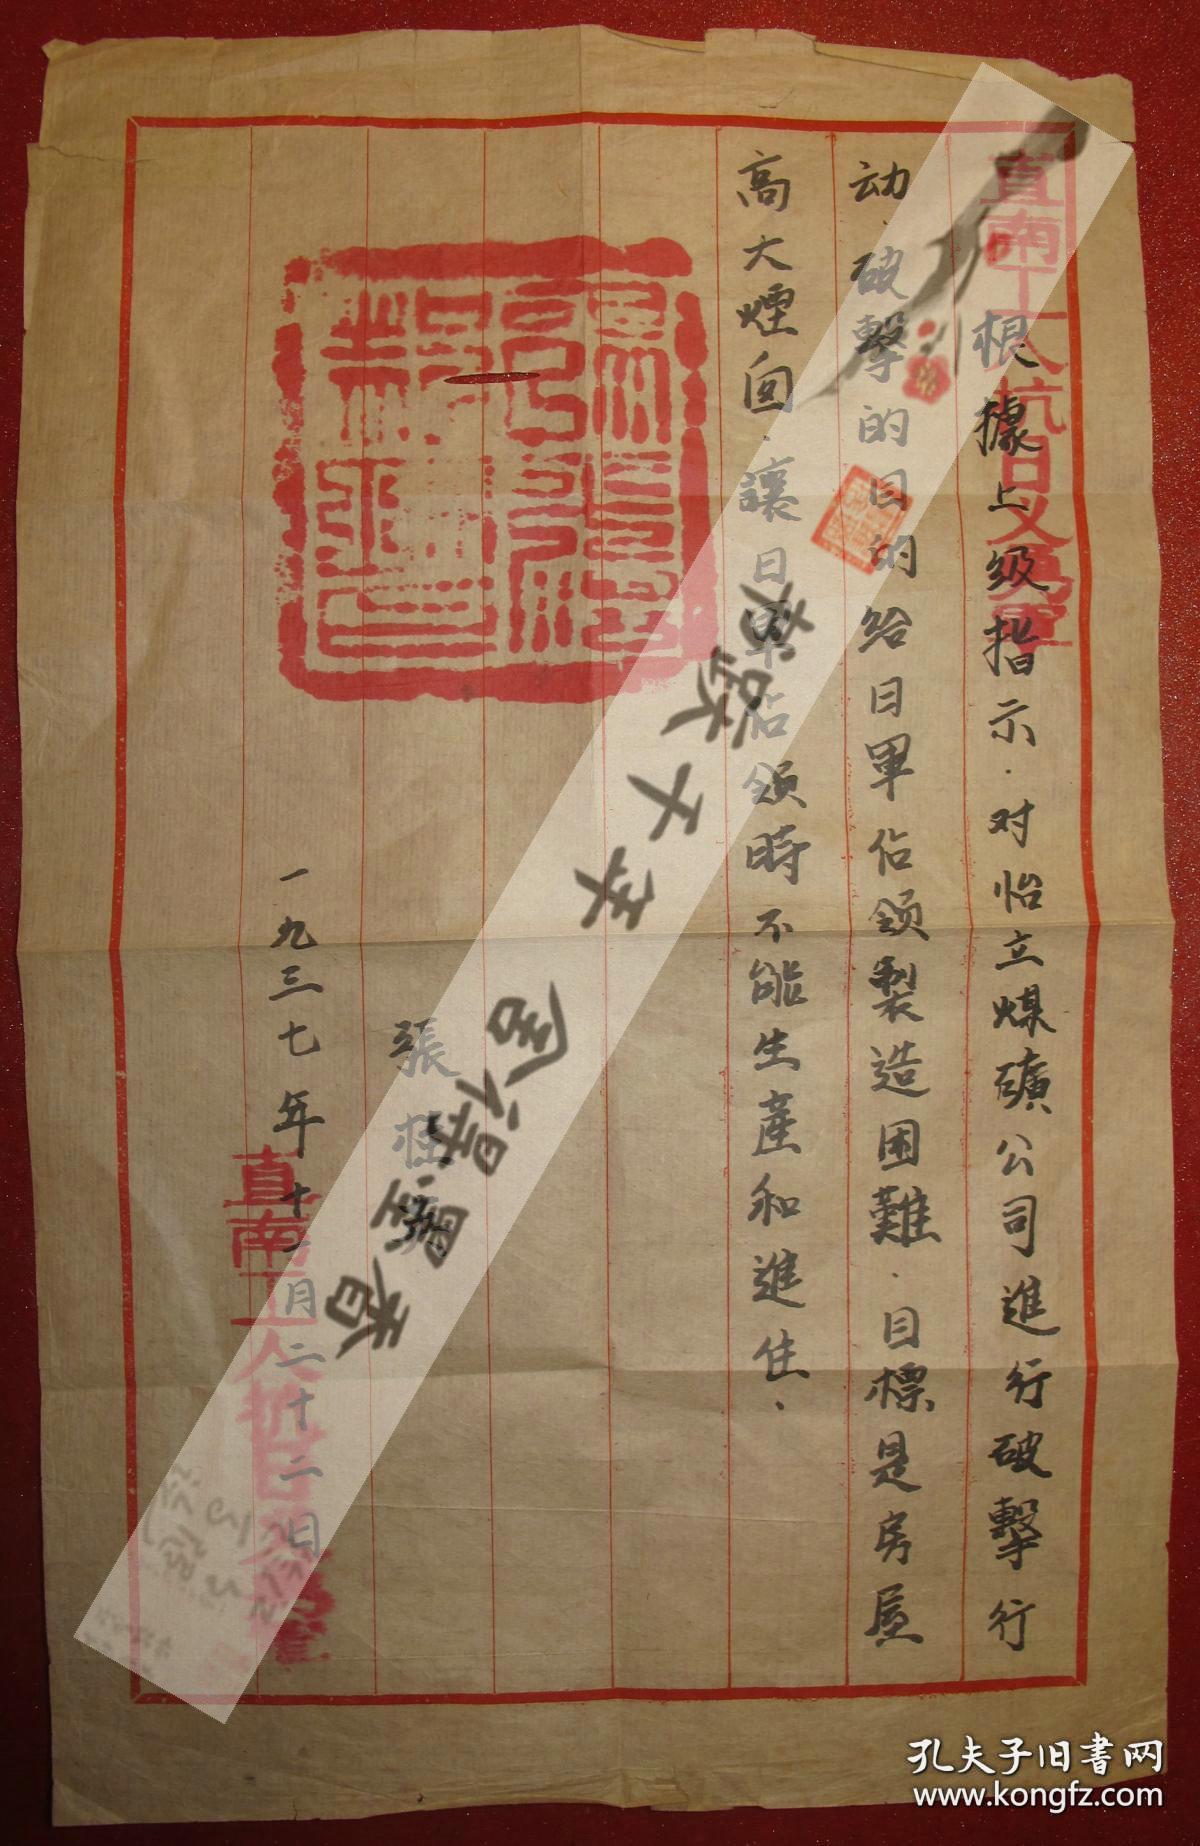 直南工人抗日义勇军
根據上级指示.对怡立煤礦公司進行破擊行
动.破擊的目的给日軍佔领製造困難.目標是房屋
高大煙囱.讓日軍佔领時不能生產和進住.
張桂
一九三七年十一月二十二日
直南工人抗日义勇军
孔夫子旧書网
www.kongfz.com